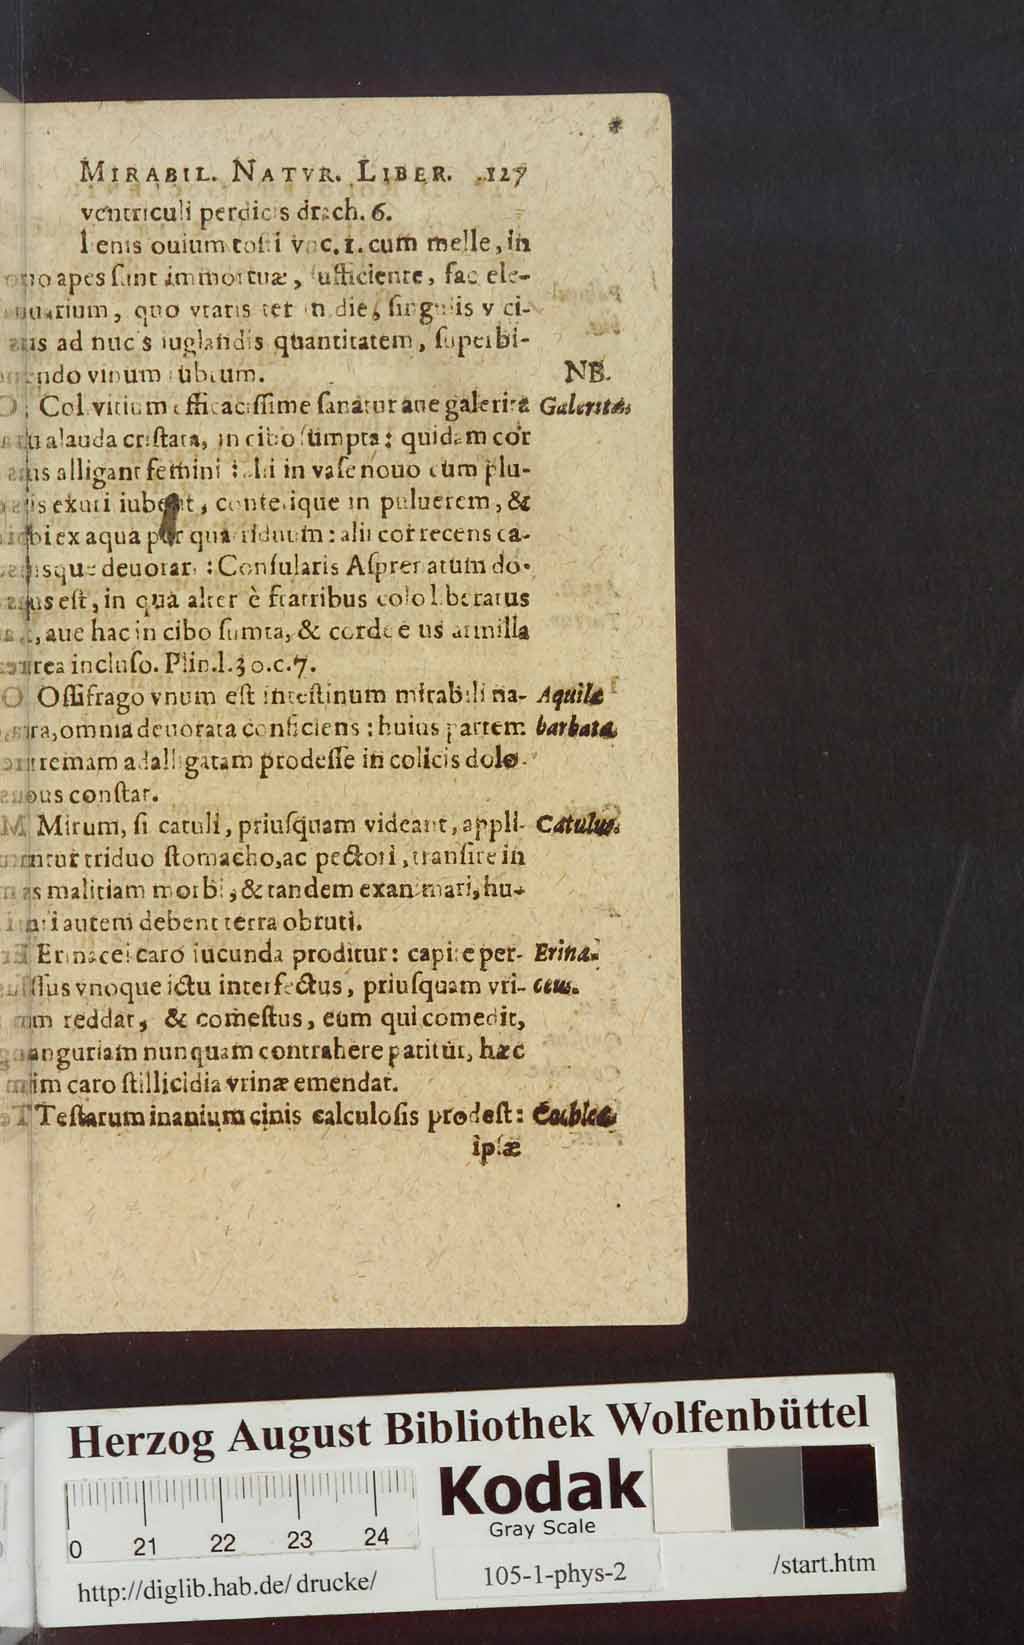 MIRABIL. NATVR. LIBER. 127
ventriculi perdicis drach. 6.
Ienis ouium tosti vnc. 1. cum melle, in
quo apes sint immortuæ, sufficiente, fac ele-
ctuarium, quo vtaris ter in die, singulis vici-
bus ad nucis iuglandis quantitatem, superbi-
bendo vinum rubeum.
NB.
Coli vitium efficacissime sanatur aue galerita
Galerita.
alauda cristata, in cibo sumpta: quidam cor
eius alligant femini: alii in vase nouo cum plu-
mis exuri iubent, conterique in puluerem, &
bibi ex aqua per quatriduum: alii cor recens ca-
lensque deuorari: Consularis Asprenatum do-
mus est, in qua alter è fratribus colo liberatus
est, aue hac in cibo sumta, & corde eius armilla
aurea incluso. Plin. l. 30. c. 7.
Ossifrago vnum est intestinum mirabili na-
Aquilæ
tura, omnia deuorata conficiens: huius partem
barbata.
extremam adalligatam prodesse in colicis dolo-
ribus constat.
Mirum, si catuli, priusquam videant, appli-
Catulus.
centur triduo stomacho, ac pectori, transire in
eas malitiam morbi, & tandem exanimari, hu-
autem debent terra obruti.
Erinacei caro iucunda proditur: capite per-
Erina-
cussus vnoque ictu interfectus, priusquam vri-
ceus.
nam reddat, & comestus, eum qui comedit,
stranguriam nunquam contrahere patitur, hæc
enim caro stillicidia vrinæ emendat.
Testarum inanium cinis calculosis prodest:
Cochlea.
ipsæ
Herzog August Bibliothek Wolfenbüttel
Kodak
Gray Scale
0 21 22 23 24
http://diglib.hab.de/drucke/
105-1-phys-2
/start.htm